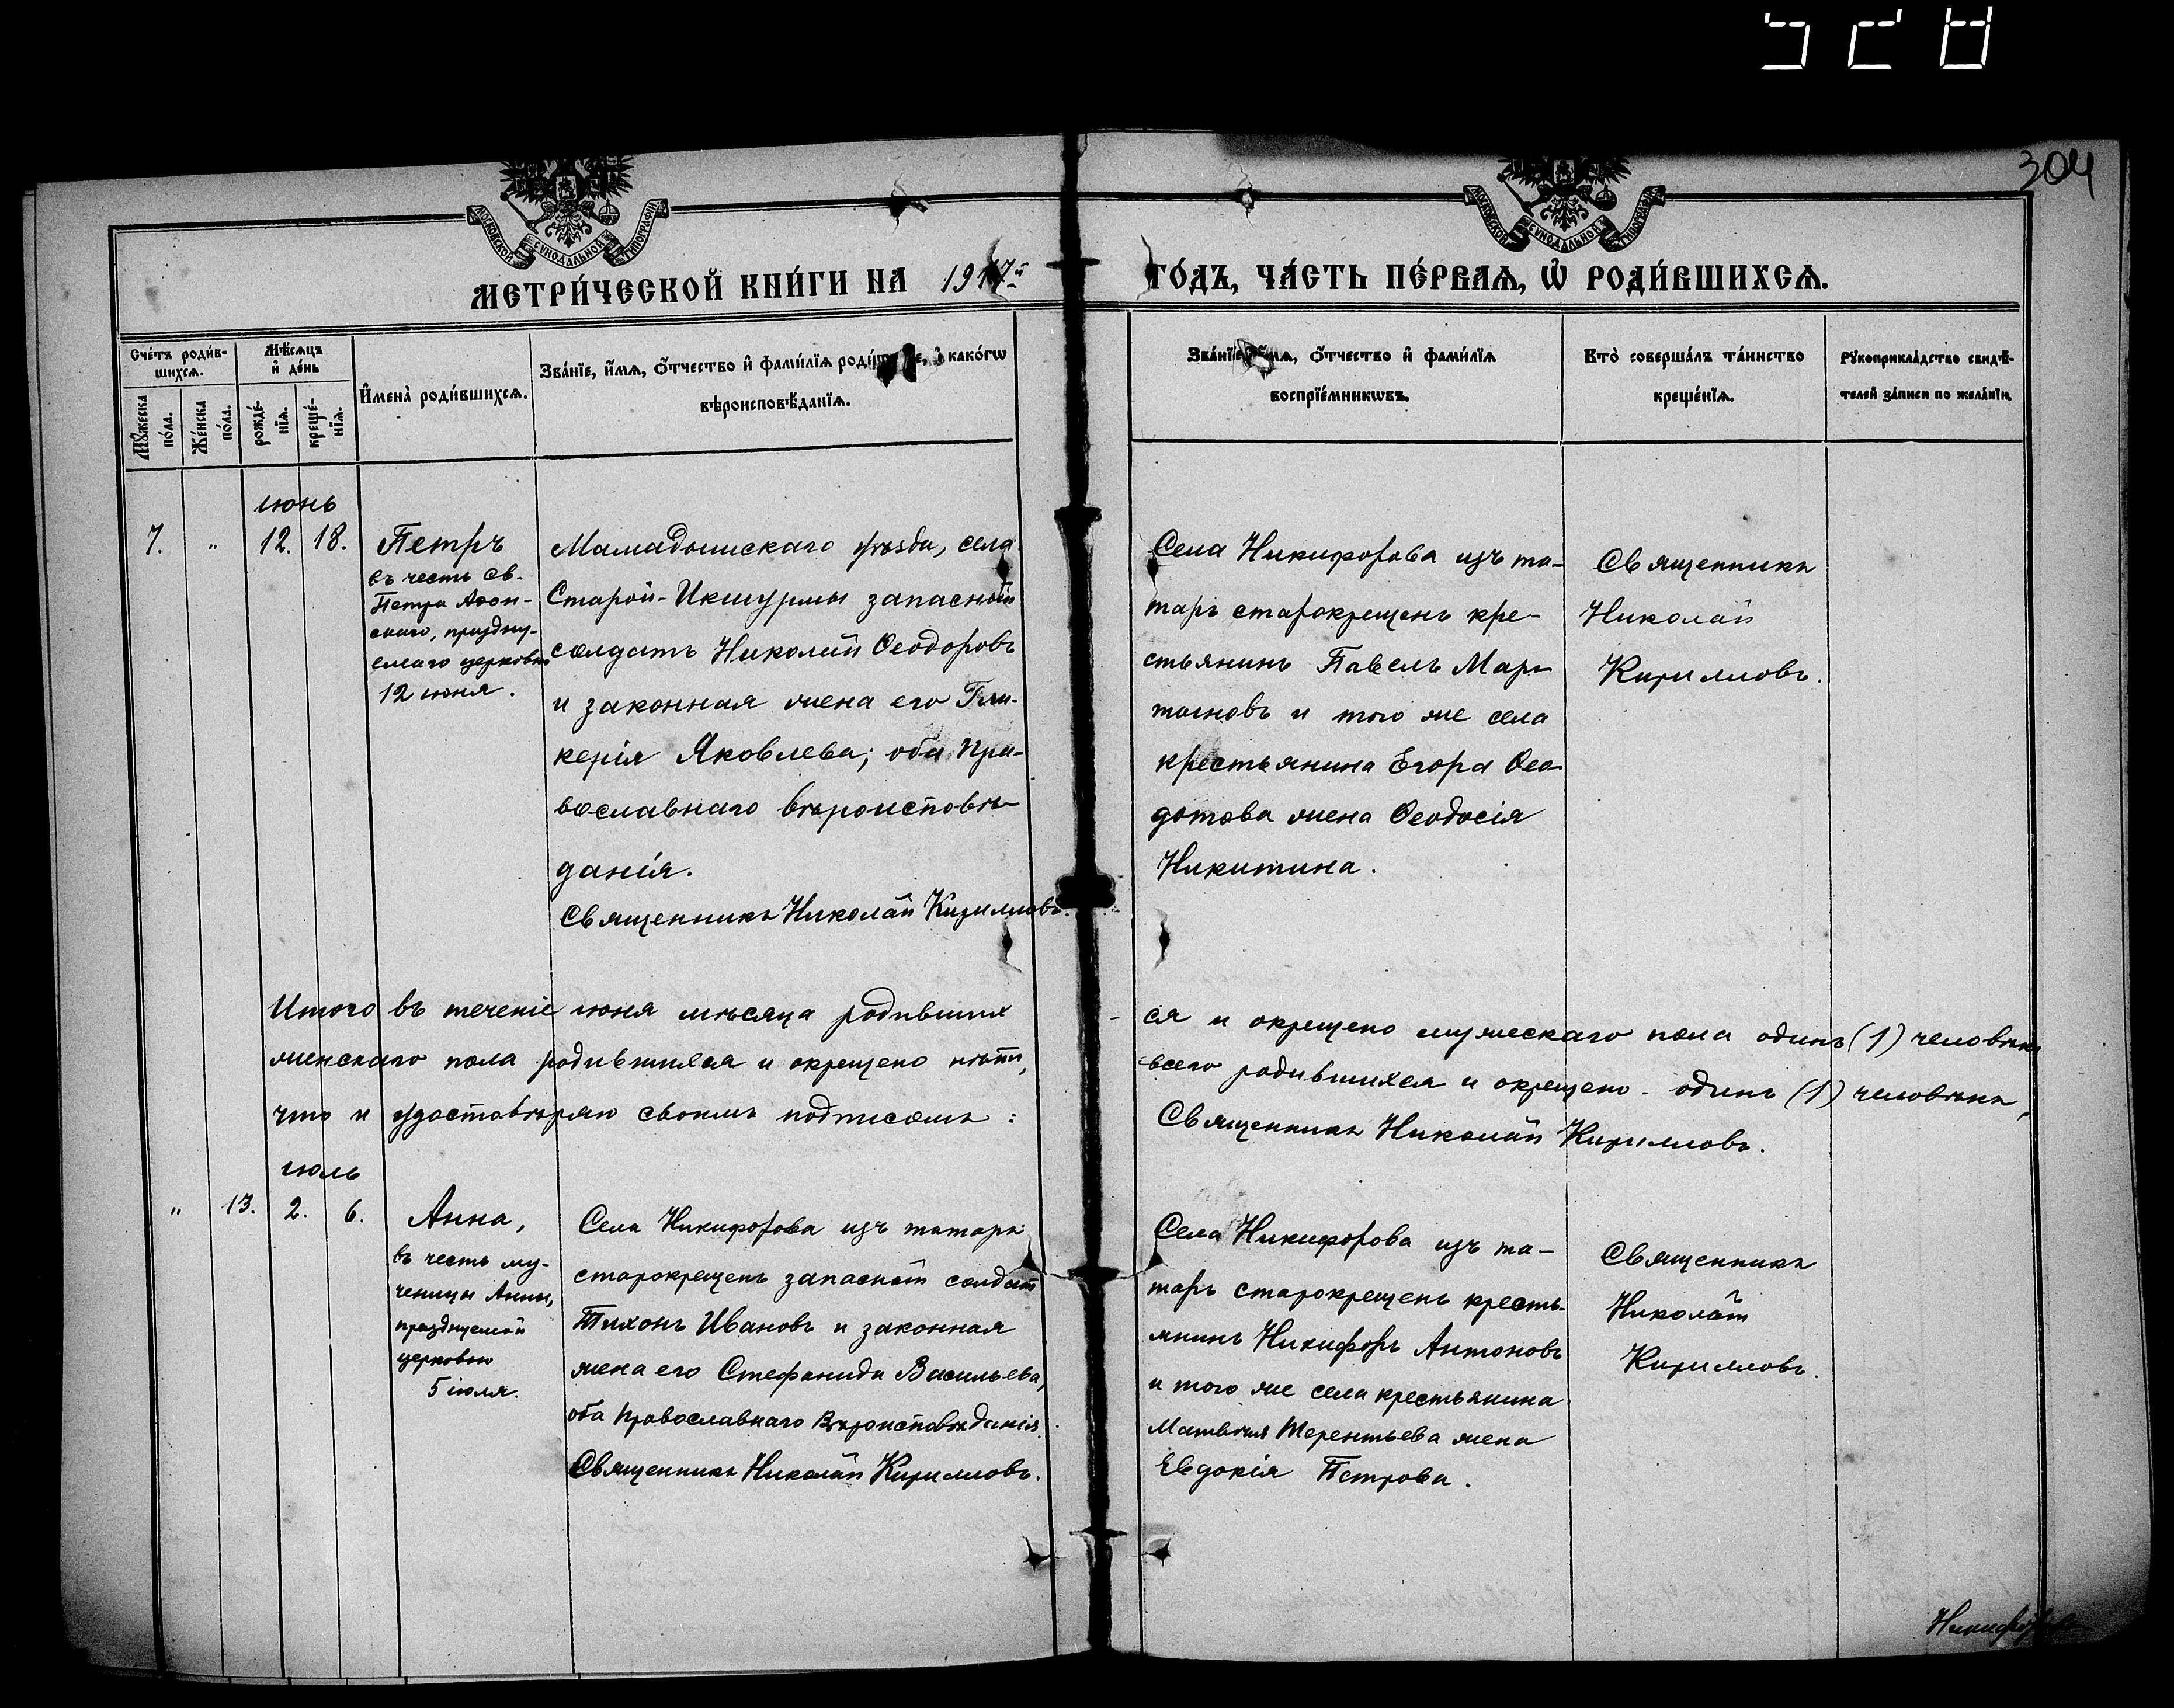 528
304
МОСКОВСКОЙ СѴНОДАЛЬНОЙ ТИПОГРАФІИ
МОСКОВСКОЙ СѴНОДАЛЬНОЙ ТИПОГРАФІИ
МЕТРИ́ЧЕСКОЙ КНИ́ГИ НА 1917й ГО́ДЪ, ЧА́СТЬ ПЕ́РВАѦ, Ѡ҆ РОДИ́ВШИХСѦ.
Сче́тъ роди́в-
шихсѧ.
Мѣ́сѧцъ
и҆ де́нь
Мꙋ́жеска
по́ла.
Же́нска
по́ла.
рожде́-
нїѧ.
креще́-
нїѧ.
И҆мена̀ роди́вшихсѧ.
Зва́нїе, и҆́мѧ, ѻ҆́тчество и҆ фами́лїѧ и҆ како́гѡ
вѣроисповѣ́данїѧ.
Зва́нїе, и҆́мѧ, ѻ҆́тчество и҆ фами́лїѧ
воспрїе́мникѡвъ.
Кто̀ соверша́лъ та́инство
креще́нїѧ.
Рꙋкоприкла́дство свидѣ́-
телей за́писи по жела́нїю.
июнь
7. " 12. 18.
Петръ
въ честь св.
Петра Аѳон-
скаго, праздну-
емаго церковью
12 июня.
Мамадышскаго уѣзда, села
Старой-Икшурмы запасный
солдатъ Николай Ѳеодоровъ
и законная жена его Гли-
керія Яковлева; оба пра-
вославнаго вѣроисповѣ-
данія.
Священникъ Николай Кирилловъ.
Села Никифорова изъ та-
таръ старокрещенъ кре-
стьянинъ Павелъ Мар-
тыновъ и того же села
крестьянина Егора Ѳео-
дотова жена Ѳеодосія
Никитина.
Священникъ
Николай
Кирилловъ.
Итого въ теченіе июня мѣсяца родивших ся и окрещено мужескаго пола одинъ (1) человѣкъ
женскаго пола родившихся и окрещено нѣтъ, всего родившихся и окрещено - одинъ (1) человѣкъ,
что и удостовѣряю своимъ подписомъ: Священникъ Николай Кирилловъ.
июль
" 13. 2. 6.
Анна,
въ честь му-
ченицы Анны,
празднуемой
церковью
5 іюля.
Села Никифорова изъ татаръ
старокрещенъ запасной солдатъ
Тихонъ Ивановъ и законная
жена его Стефанида Васильева,
оба православнаго вѣроисповѣданія.
Священникъ Николай Кирилловъ.
Села Никифорова изъ та-
таръ старокрещенъ кресть-
янинъ Никифоръ Антоновъ
и того же села крестьянина
Матвѣя Терентьева жена
Евдокія Петрова.
Священникъ
Николай
Кирилловъ.